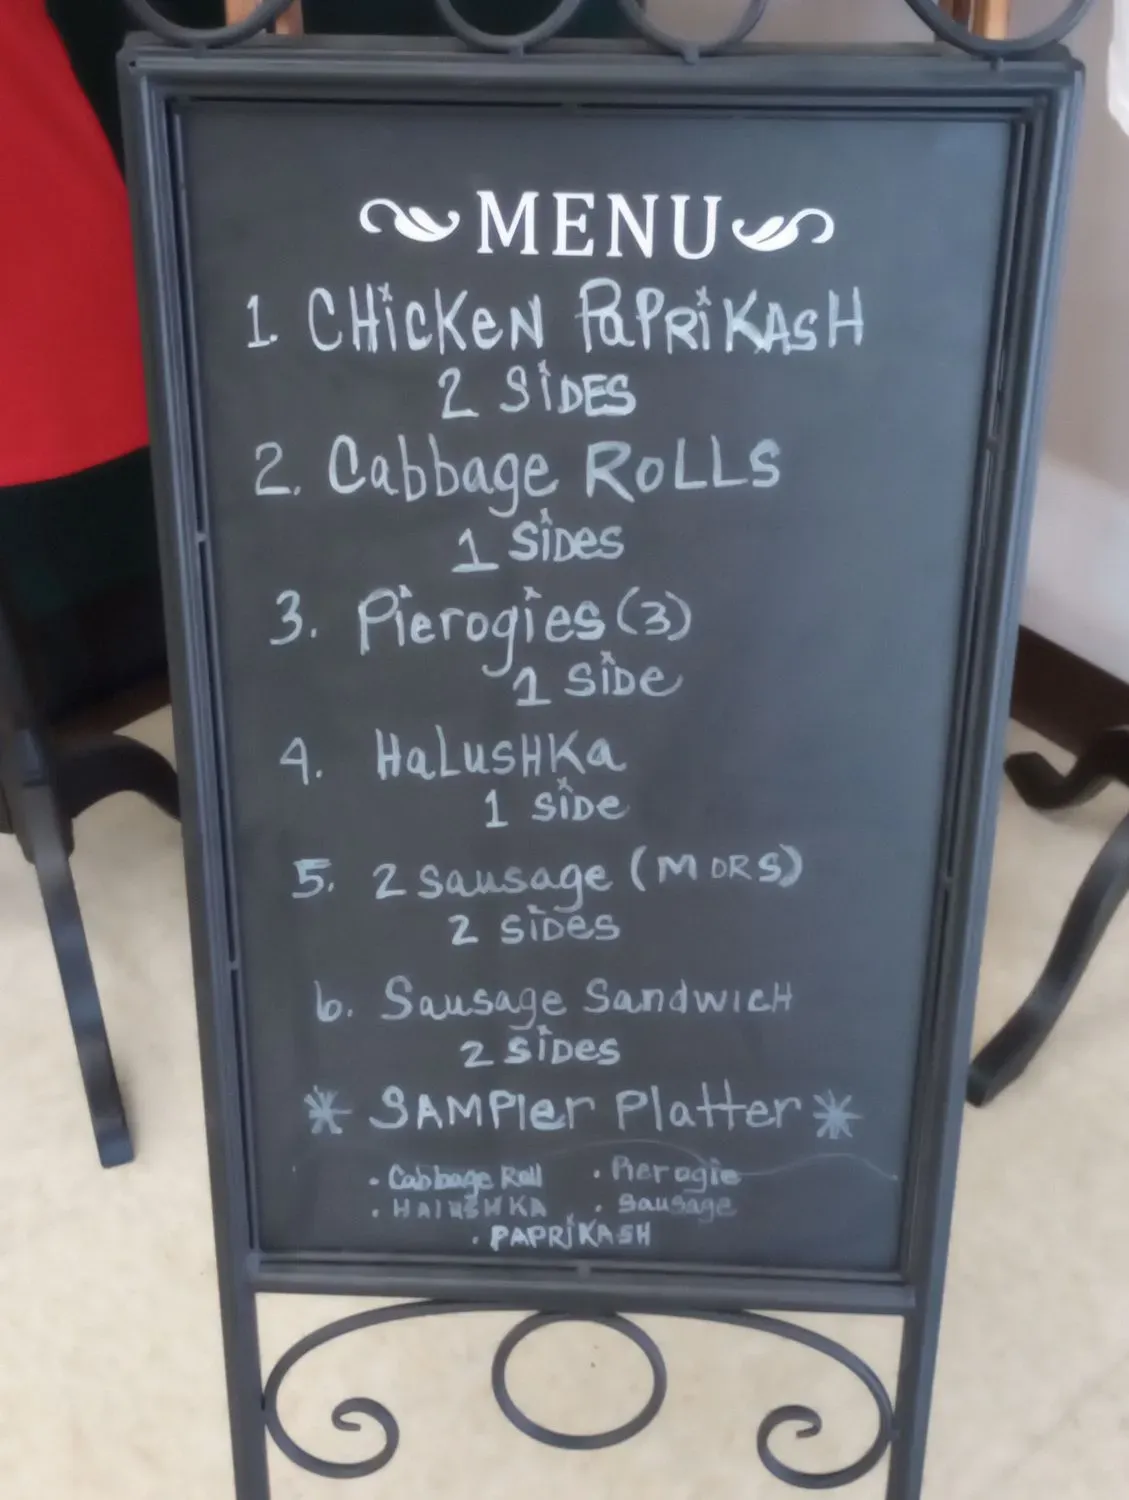 MENU
1. CHicKeN PaPRiKASH
2 SiDES
2. Cabbage RoLLS
1 SiDes
3. Pierogies (3)
1 SiDe
4. HaLusHKa
1 SiDe
5. 2 Sausage (M OR S)
2 SiDes
6. Sausage SandwicH
2 SiDes
* SAMPler Platter *
· Cabbage Roll · Pierogie
· HALUSHKA · Sausage
· PAPRiKASH